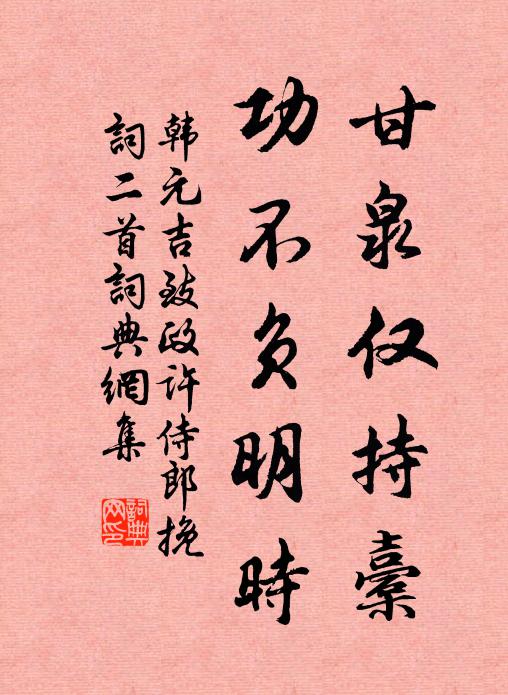 甘泉仅持橐
功不负明時
韩元吉致政许侍郎挽
詞二首詞典網集
詞典网印